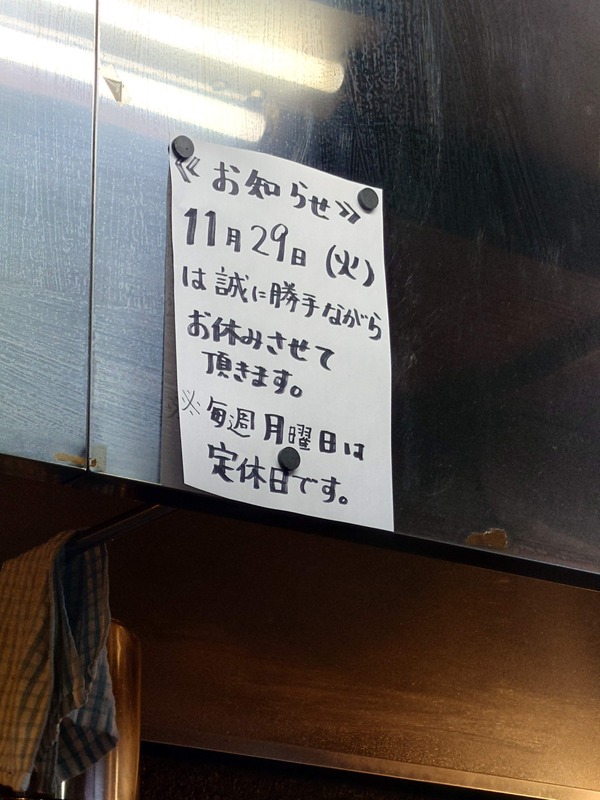 《お知らせ》
11月29日(火)
は誠に勝手ながら
お休みさせて
頂きます。
※毎週月曜日は
定休日です。